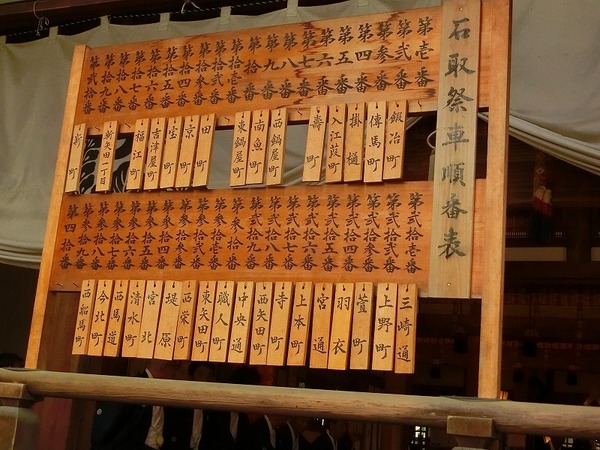 石取祭車順番表
第壱番
第弐番
第参番
第四番
第五番
第六番
第七番
第八番
第九番
第拾番
第拾壱番
第拾弐番
第拾参番
第拾四番
第拾五番
第拾六番
第拾七番
第拾八番
第拾九番
第弐拾番
鍛冶町
傳馬町
掛樋
入江葭町
壽町
西鍋屋町
南魚町
東鍋屋町
田町
京町
宝町
吉津屋町
福江町
新矢田一丁目
新町
第弐拾壱番
第弐拾弐番
第弐拾参番
第弐拾四番
第弐拾五番
第弐拾六番
第弐拾七番
第弐拾八番
第弐拾九番
第参拾番
第参拾壱番
第参拾弐番
第参拾参番
第参拾四番
第参拾五番
第参拾六番
第参拾七番
第参拾八番
第参拾九番
第四拾番
三崎通
上野町
萱町
羽衣
宮通
上本町
寺町
西矢田町
中央通
職人町
東矢田町
西栄町
堤原
宮北
清水町
西馬道
今北町
西船馬町